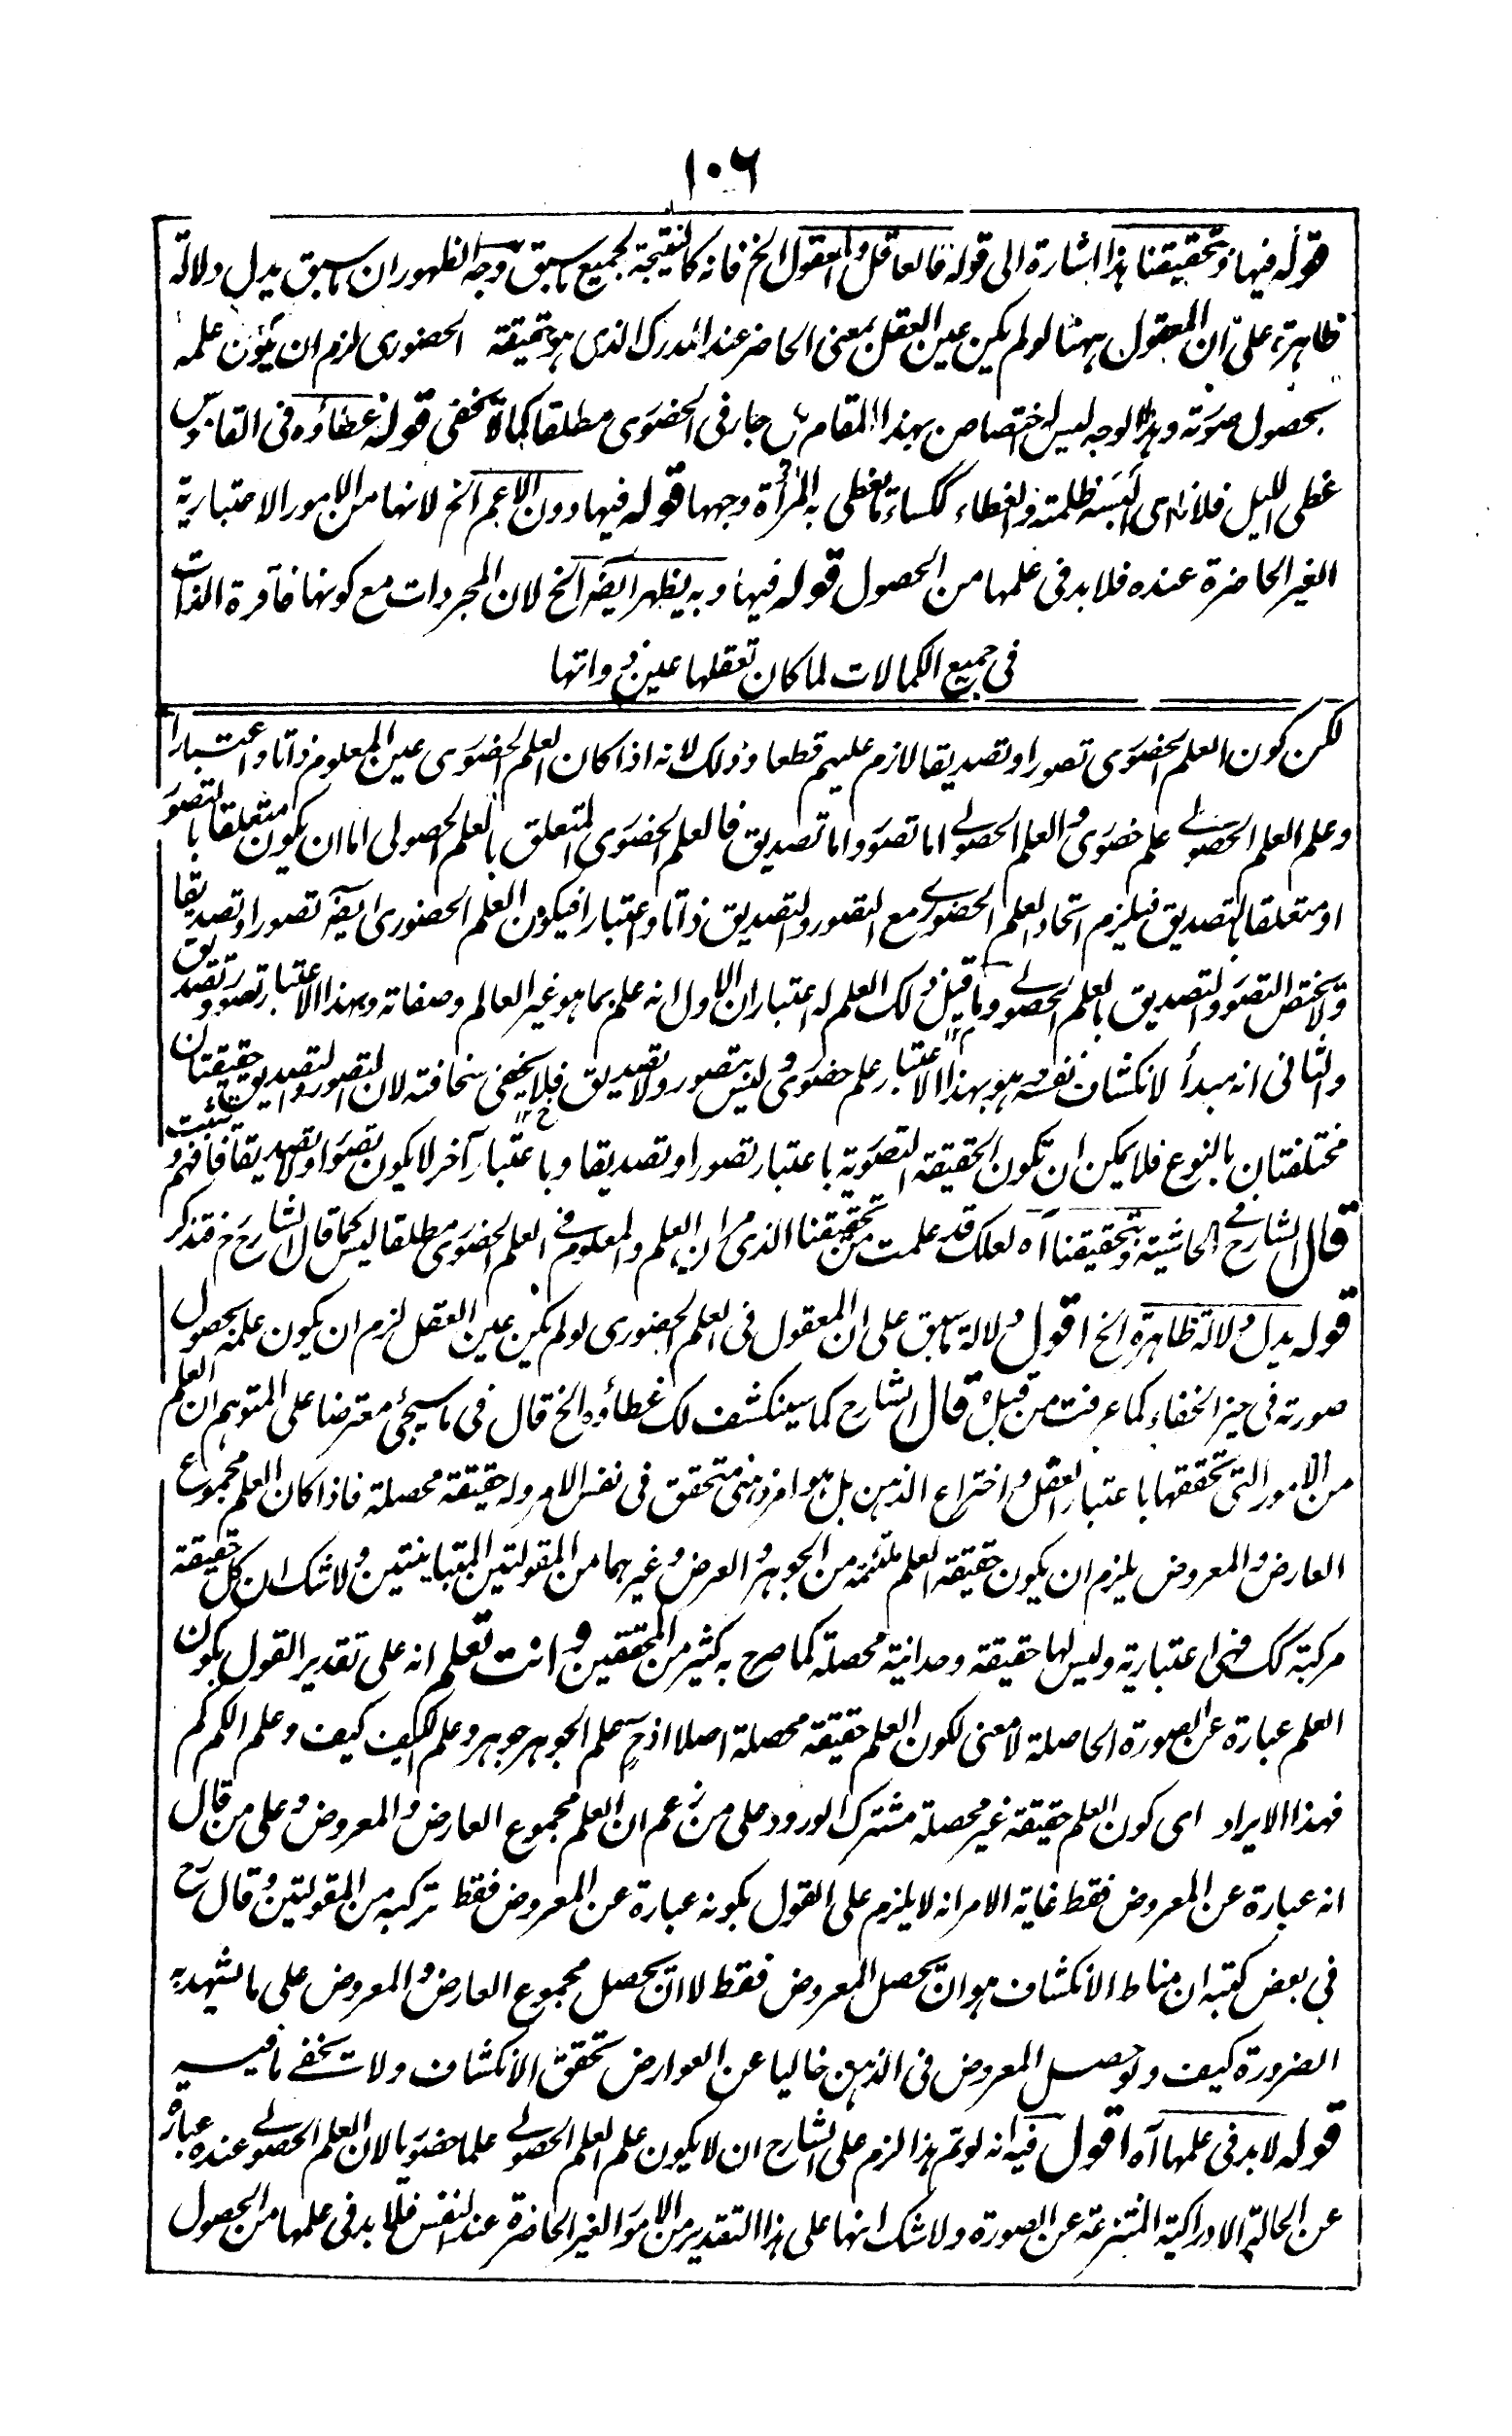 ١٠٦
قوله فيها وبتحقيقنا هذا اشارة الى قوله فالعاقل والمعقول الخ فانه كالنتيجة لجميع ما سبق وجه الظهور ان ما سبق يدل دلالة
ظاهرة على ان المعقول ههنا لو لم يكن عين العقل بمعنى الحاضر عند المدرك الذى هو حقيقة الحضورى لزم ان يكون علمه
بحصول صورته وهذا الوجه ليس له اختصاص بهذا المقام بل جار فى الحضورى مطلقا كما لا يخفى قوله غطاؤه فى القاموس
غطى الليل فلانا اى البسه ظلمته والغطاء ككساء ما تغطى به المرأة وجهها قوله فيها دون الاعم الخ لانها من الامور الاعتبارية
الغير الحاضرة عنده فلا بد فى علمها من الحصول قوله فيها وبه يظهر ايضا الخ لان المجردات مع كونها فاقرة الذات
فى جميع الكمالات لما كان تعقلها عين ذواتها
لكن كون العلم الحضورى تصورا وتصديقا لازم عليهم قطعا وذلك لانه اذا كان العلم الحضورى عين المعلوم ذاتا واعتبارا
وعلم العلم الحصولى علم حضورى والعلم الحصولى اما تصور واما تصديق فالعلم الحضورى المتعلق بالعلم الحصولى اما ان يكون متعلقا بالتصور
او متعلقا بالتصديق فيلزم اتحاد العلم الحضورى مع التصور والتصديق ذاتا واعتبارا فيكون العلم الحضورى ايضا تصورا وتصديقا
ولا يختص التصور والتصديق بالعلم الحصولى وما قيل ذلك العلم له اعتباران الاول انه علم بما هو غير العالم وصفاته وبهذا الاعتبار تصور وتصديق
والثانى انه مبدأ لانكشاف نفسه وهو بهذا الاعتبار علم حضورى وليس بتصور ولا تصديق فلا يخفى سخافته لان التصور والتصديق حقيقتان
مختلفتان بالنوع فلا يمكن ان تكون الحقيقة التصورية باعتبار تصورا وتصديقا وباعتبار آخر لا يكون تصورا ولا تصديقا فافهم وتثبت
قال الشارح فى الحاشية وبتحقيقنا آه لعلك قد علمت من تحقيقنا الذى مر ان العلم والمعلوم فى العلم الحضورى مطلقا ليس كما قال الشارح فتذكر
قوله يدل دلالة ظاهرة الخ اقول دلالة ما سبق على ان المعقول فى العلم الحضورى لو لم يكن عين العقل لزم ان يكون علمه بحصول
صورته فى حيز الخفاء كما عرفت من قبل قال الشارح كما سينكشف لك غطاؤه الخ قال فى ما سيجئ معترضا على المتوهم ان العلم
من الامور التى تحققها باعتبار العقل واختراع الذهن بل هو امر ذهنى متحقق فى نفس الامر وله حقيقة محصلة فاذا كان العلم مجموع
العارض والمعروض يلزم ان يكون حقيقة العلم ملتئمة من الجوهر والعرض وغيرهما من المقولتين المتباينتين ولا شك ان كل حقيقة
مركبة كك فهى اعتبارية وليس لها حقيقة وحدانية محصلة كما صرح به كثير من المحققين وانت تعلم انه على تقدير القول بكون
العلم عبارة عن الصورة الحاصلة لا معنى لكون العلم حقيقة محصلة اصلا اذ ح علم الجوهر جوهر وعلم الكيف كيف وعلم الكم كم
فهذا الايراد اى كون العلم حقيقة غير محصلة مشترك الورود على من زعم ان العلم مجموع العارض والمعروض وعلى من قال
انه عبارة عن المعروض فقط غاية الامر انه لا يلزم على القول بكونه عبارة عن المعروض فقط تركبه من المقولتين وقال رح
فى بعض كتبه ان مناط الانكشاف هو ان يحصل المعروض فقط لا ان يحصل مجموع العارض والمعروض على ما يشهد به
الضرورة كيف ولو حصل المعروض فى الذهن خاليا عن العوارض تحقق الانكشاف ولا يخفى ما فيه
قوله لا بد فى علمها آه اقول فيه انه لو تم هذا لزم على الشارح ان لا يكون علم العلم الحصولى علما حضوريا لان العلم الحصولى عنده عبارة
عن الحالة الادراكية المنتزعة عن الصورة ولا شك انها على هذا التقدير من الامور الغير الحاضرة عند النفس فلا بد فى علمها من الحصول